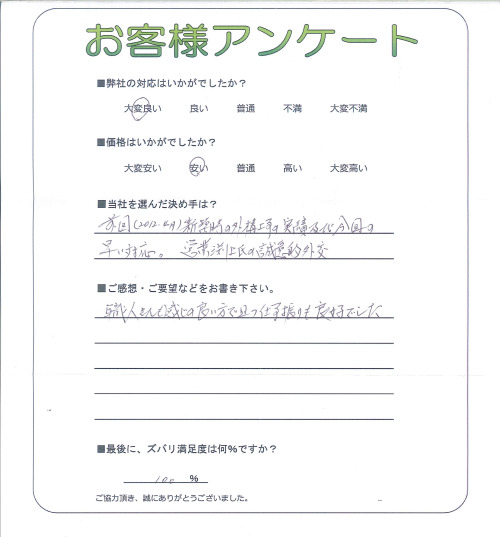 お客様アンケート
■弊社の対応はいかがでしたか？
大変良い 良い 普通 不満 大変不満
■価格はいかがでしたか？
大変安い 安い 普通 高い 大変高い
■当社を選んだ決め手は？
前回(2012.4月)新築時の外構工事の実績及び今回の
早い対応。営業 上氏の誠意的外交
■ご感想・ご要望などをお書き下さい。
職人さんも感じの良い方で且つ仕事振りも良好でした
■最後に、ズバリ満足度は何％ですか？
100 %
ご協力頂き、誠にありがとうございました。